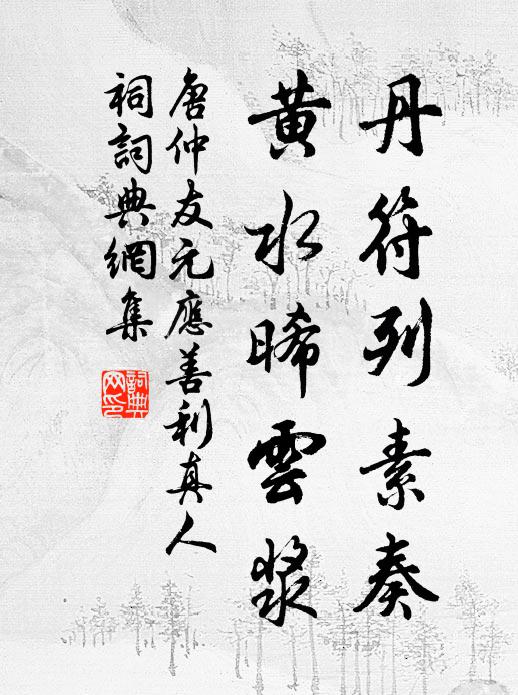 丹符列素奏
黄水晞雲漿
唐仲友元應善利真人
祠詞典網集
詞典網印